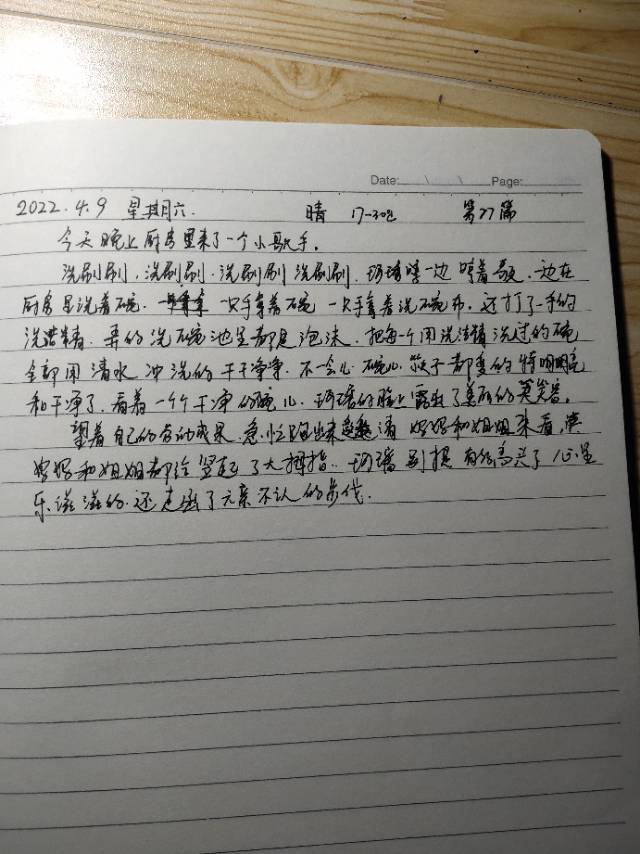 Date: \ \ Page:
2022.4.9 星期六. 晴 17-30℃ 第27篇
今天晚上厨房里来了一个小歌手。
洗刷刷,洗刷刷,洗刷刷 洗刷刷. 一边哼着歌. 一边在
厨房里洗着碗. 一只手拿着碗 一只手拿着洗碗布, 还打了一手的
洗洁精. 弄的洗碗池里都是泡沫. 把每一个用洗洁精洗过的碗
全部用清水冲洗的干干净净. 不一会儿 碗儿. 筷子都变的
和干净了. 看着一个个干净的碗儿. 的脸上露出了美丽的笑容。
望着自己的劳动成果, 急忙跑出来 请妈妈和姐姐来看,
妈妈和姐姐都给竖起了大拇指. 别提有多高兴了 心里
乐滋滋的. 还走出了六亲不认的步伐.